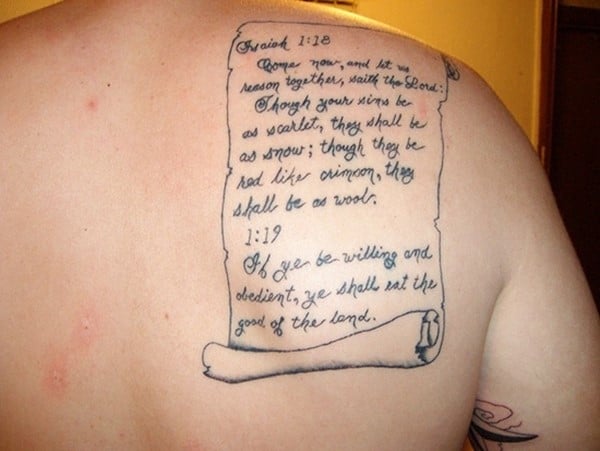 Isaiah 1:18
Come now, and let us
reason together, saith the Lord:
Though your sins be
as scarlet, they shall be
as snow; though they be
red like crimson, they
shall be as wool.
1:19
If ye be willing and
obedient, ye shall eat the
good of the land.